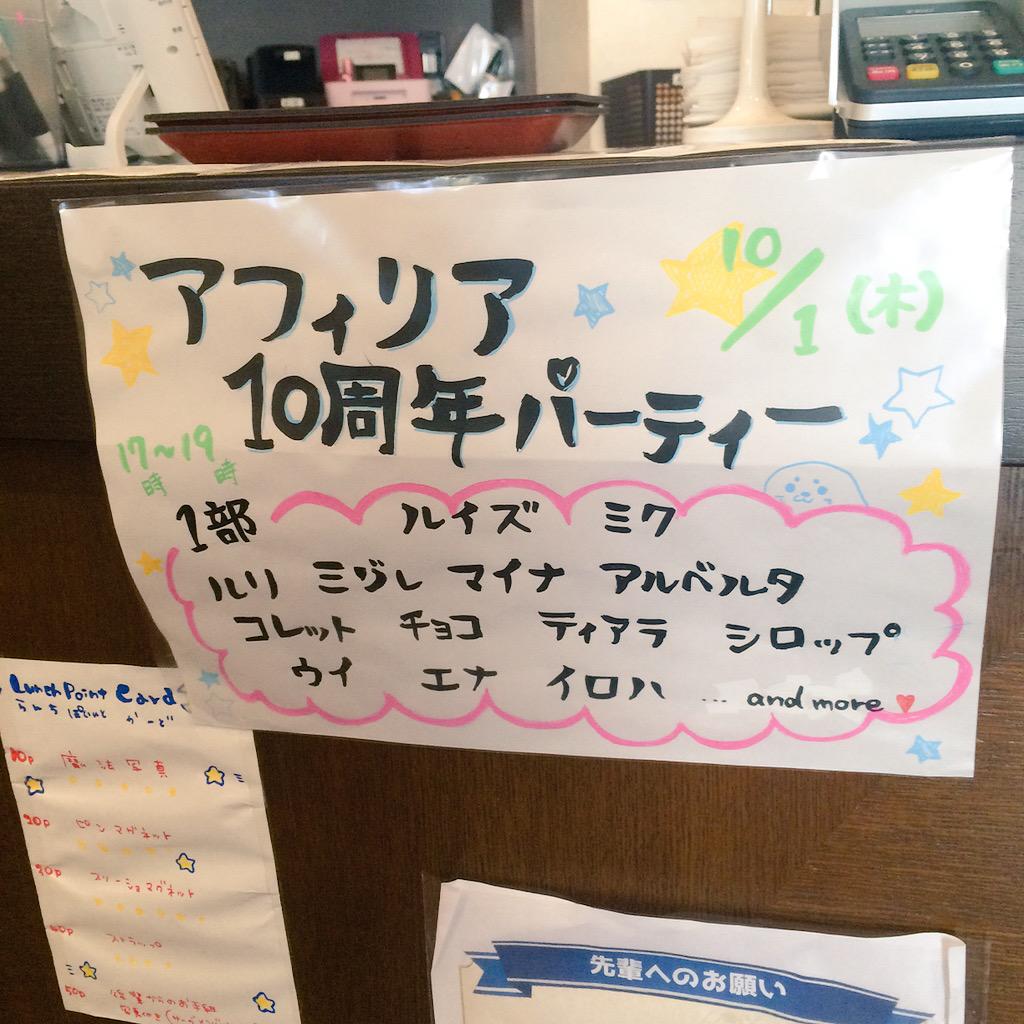 アフィリア
10周年パーティー
10/1(木)
17時～19時
1部 ルイズ ミク
ルリ ミヅレ マイナ アルベルタ
コレット チョコ ティアラ シロップ
ウイ エナ イロハ … and more
Lunch Point Card
らんち ぽいんと かーど
10p 魔法写真
20p ピンマグネット
マグネット
ストラップ
50p
先輩へのお願い